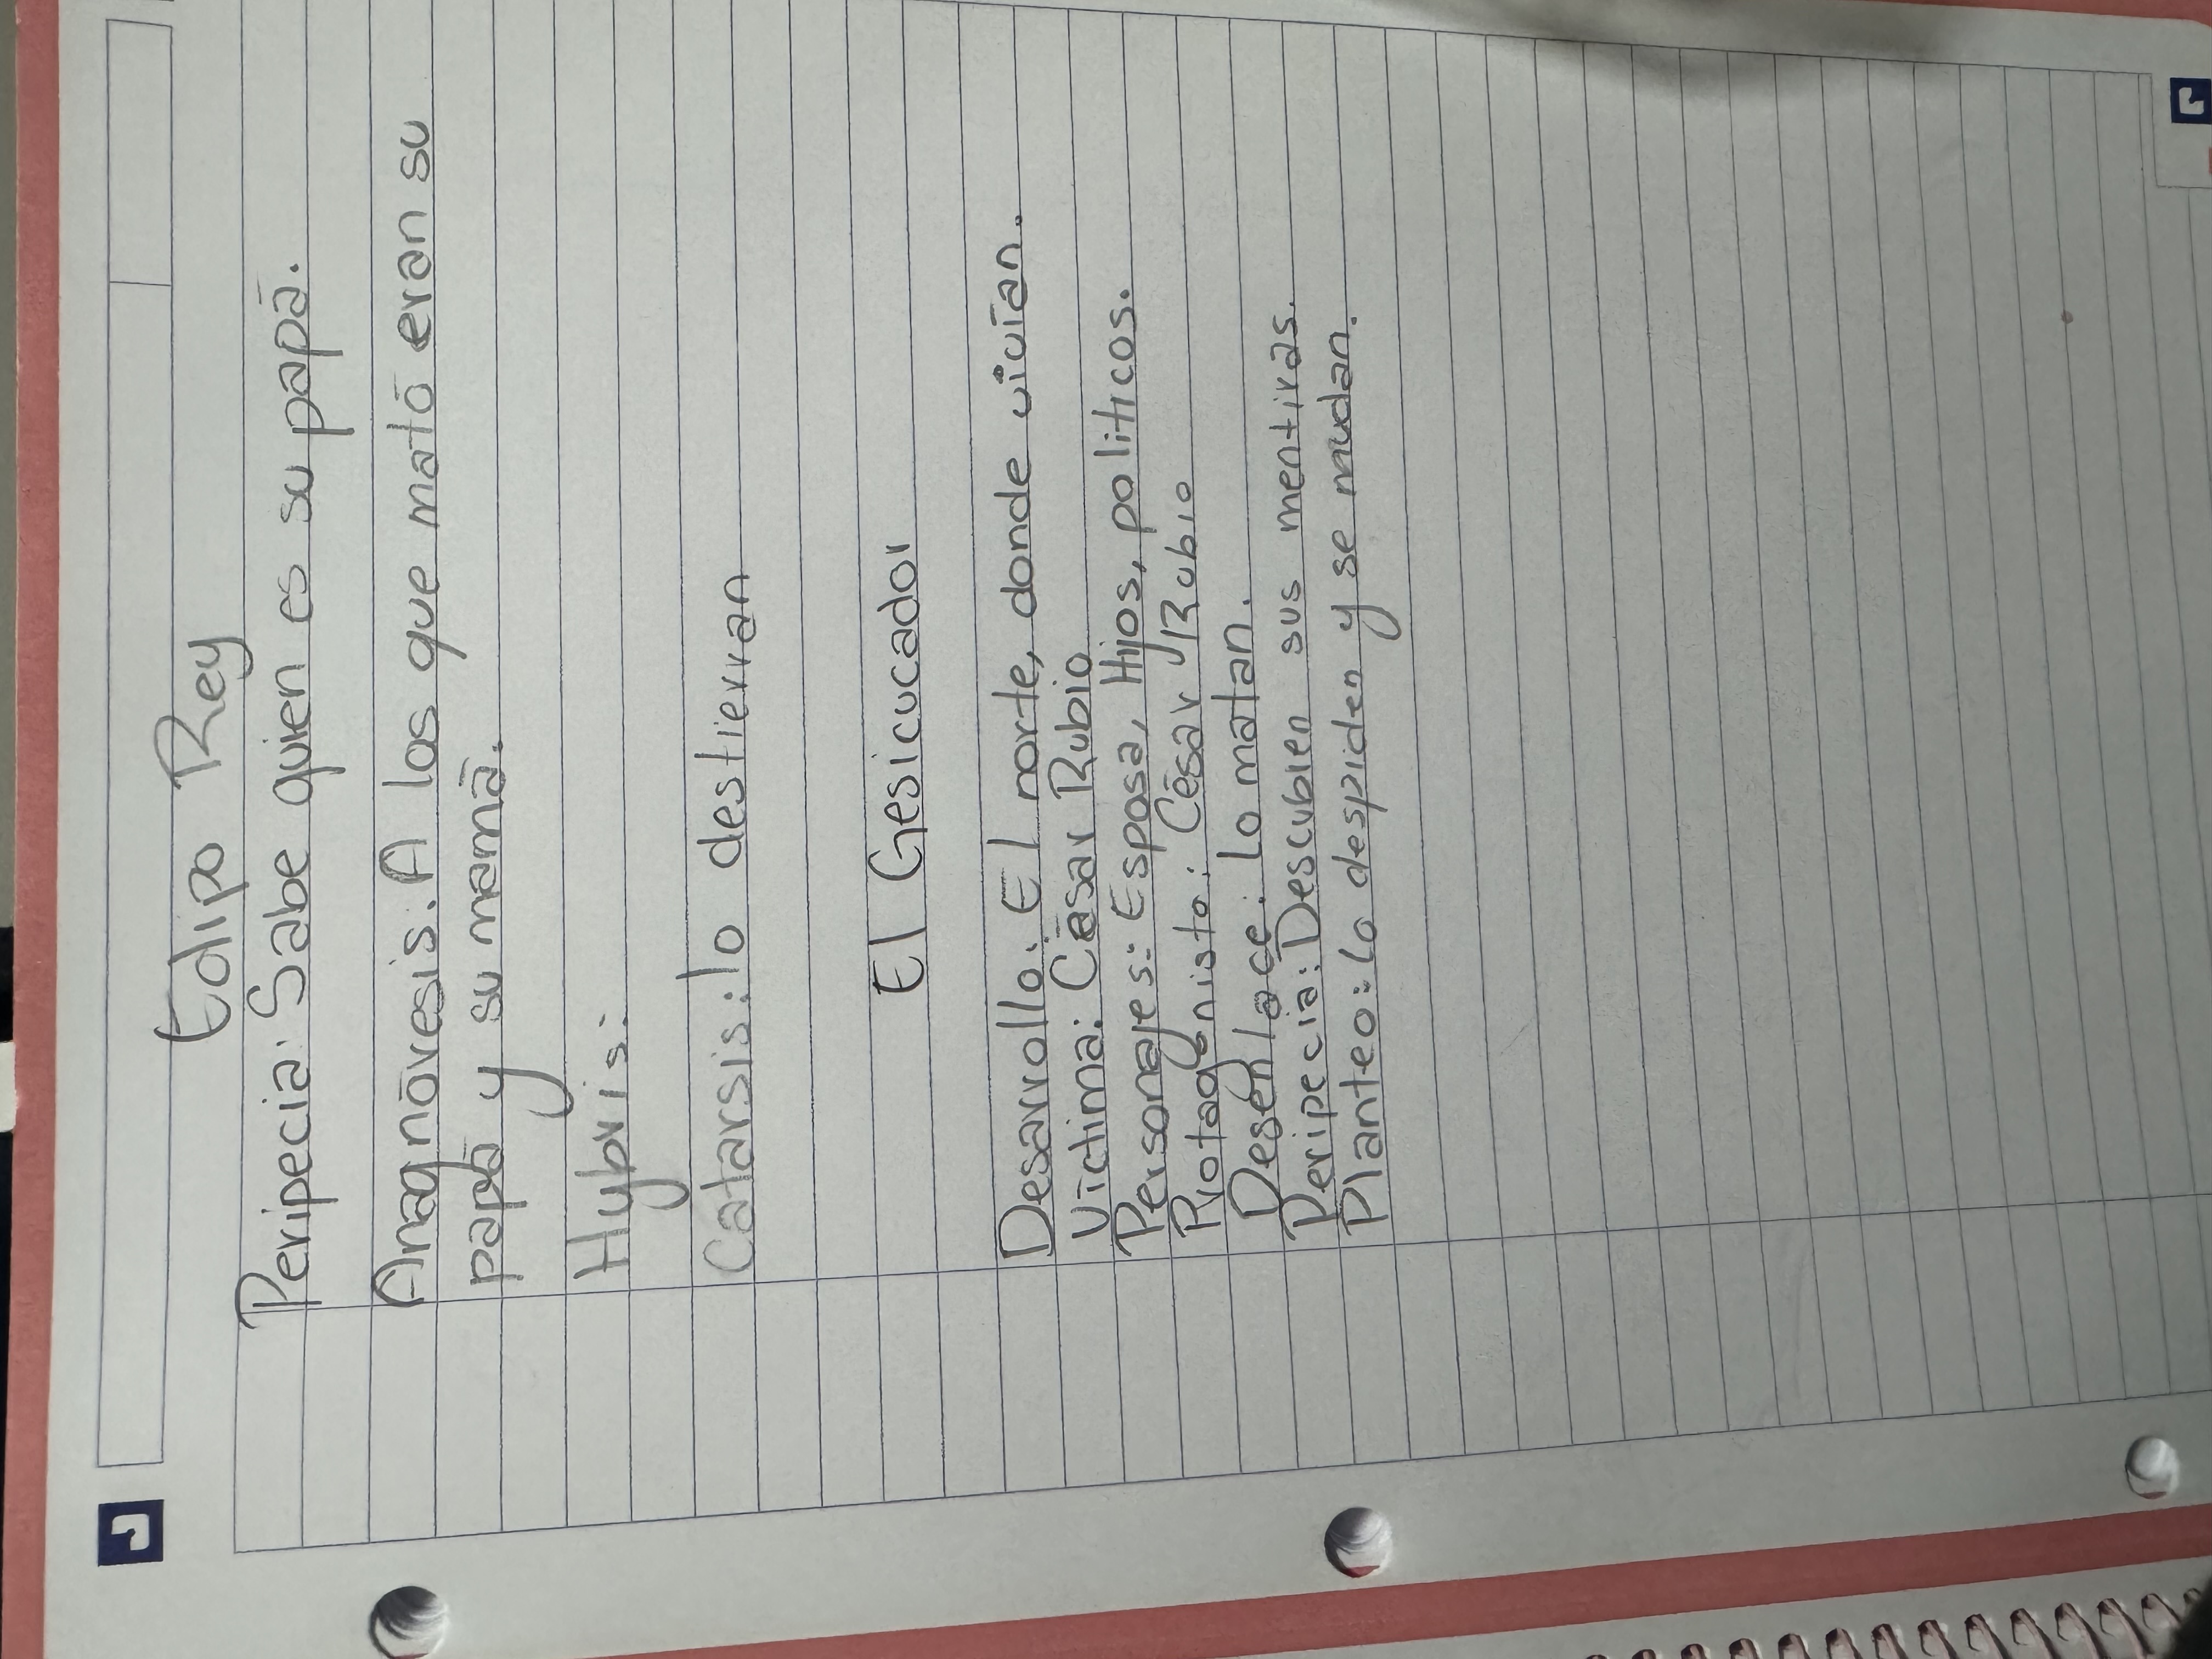 Edipo Rey
Peripecia: Sabe quien es su papá.
Anagnóvesis: A los que mató eran su
papá y su mamá.
Hybris:
Catarsis: lo destierran
El Gesicucador
Desarrollo: El norte, donde vivían.
Victima: César Rubio
Personajes: Esposa, Hijos, politicos.
Protagonista: César Rubio
Desenlace: Lo matan.
Peripecia: Descubren sus mentiras.
Planteo: Lo despiden y se mudan.